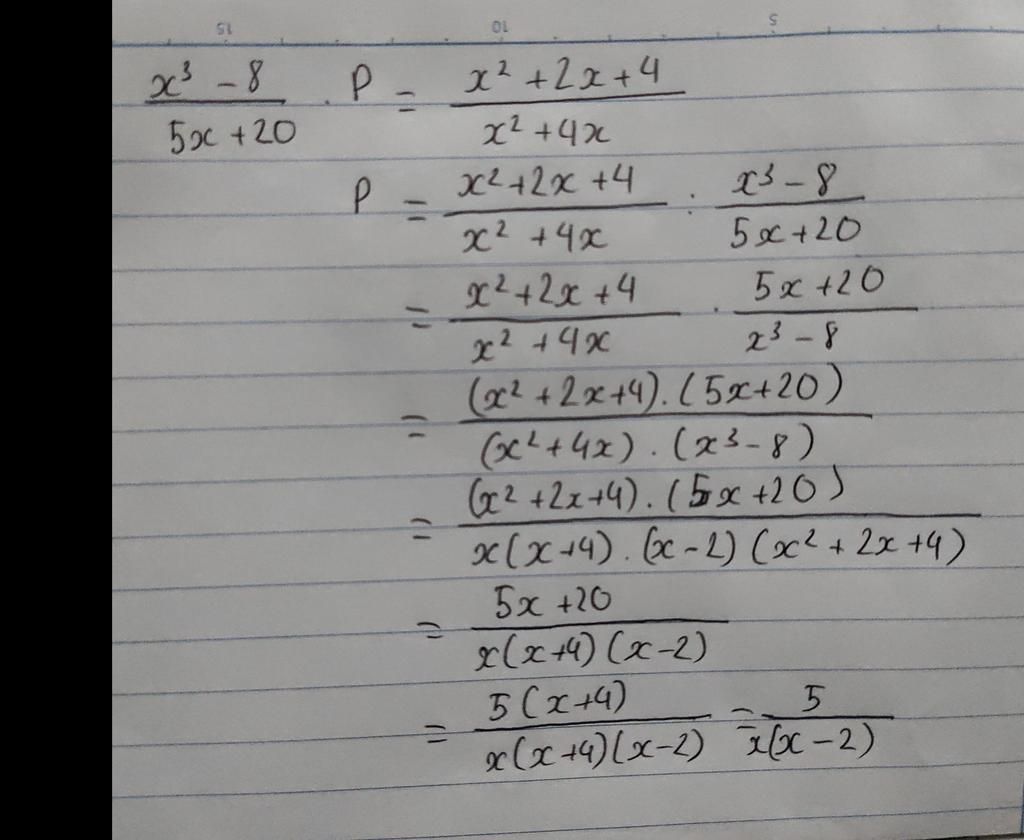 15 10 5
(x³ - 8)/(5x + 20) . P = (x² + 2x + 4)/(x² + 4x)
P = (x² + 2x + 4)/(x² + 4x) : (x³ - 8)/(5x + 20)
= (x² + 2x + 4)/(x² + 4x) . (5x + 20)/(x³ - 8)
= ((x² + 2x + 4) . (5x + 20))/((x² + 4x) . (x³ - 8))
= ((x² + 2x + 4) . (5x + 20))/(x(x + 4) . (x - 2)(x² + 2x + 4))
= (5x + 20)/(x(x + 4)(x - 2))
= (5(x + 4))/(x(x + 4)(x - 2)) = 5/(x(x - 2))